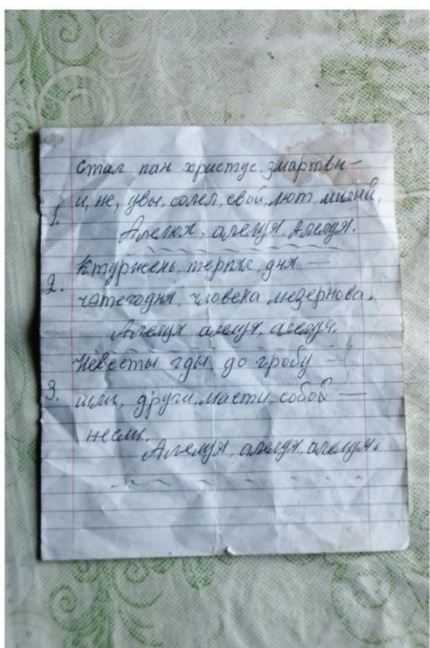 Стал пан христус змартвы—
1. и, не, увы. солел, свой люд милый,
Алелюя, алелуя, Алелуя.
2. Ктуржень, терпял дня —
чэтегодня чловека мизернова,
Алелуя алелуя, алелуя.
Невесты гды, до гробу —
3. шли, други, масти, собой —
несли.
Алелуя, алелуя алелуя.